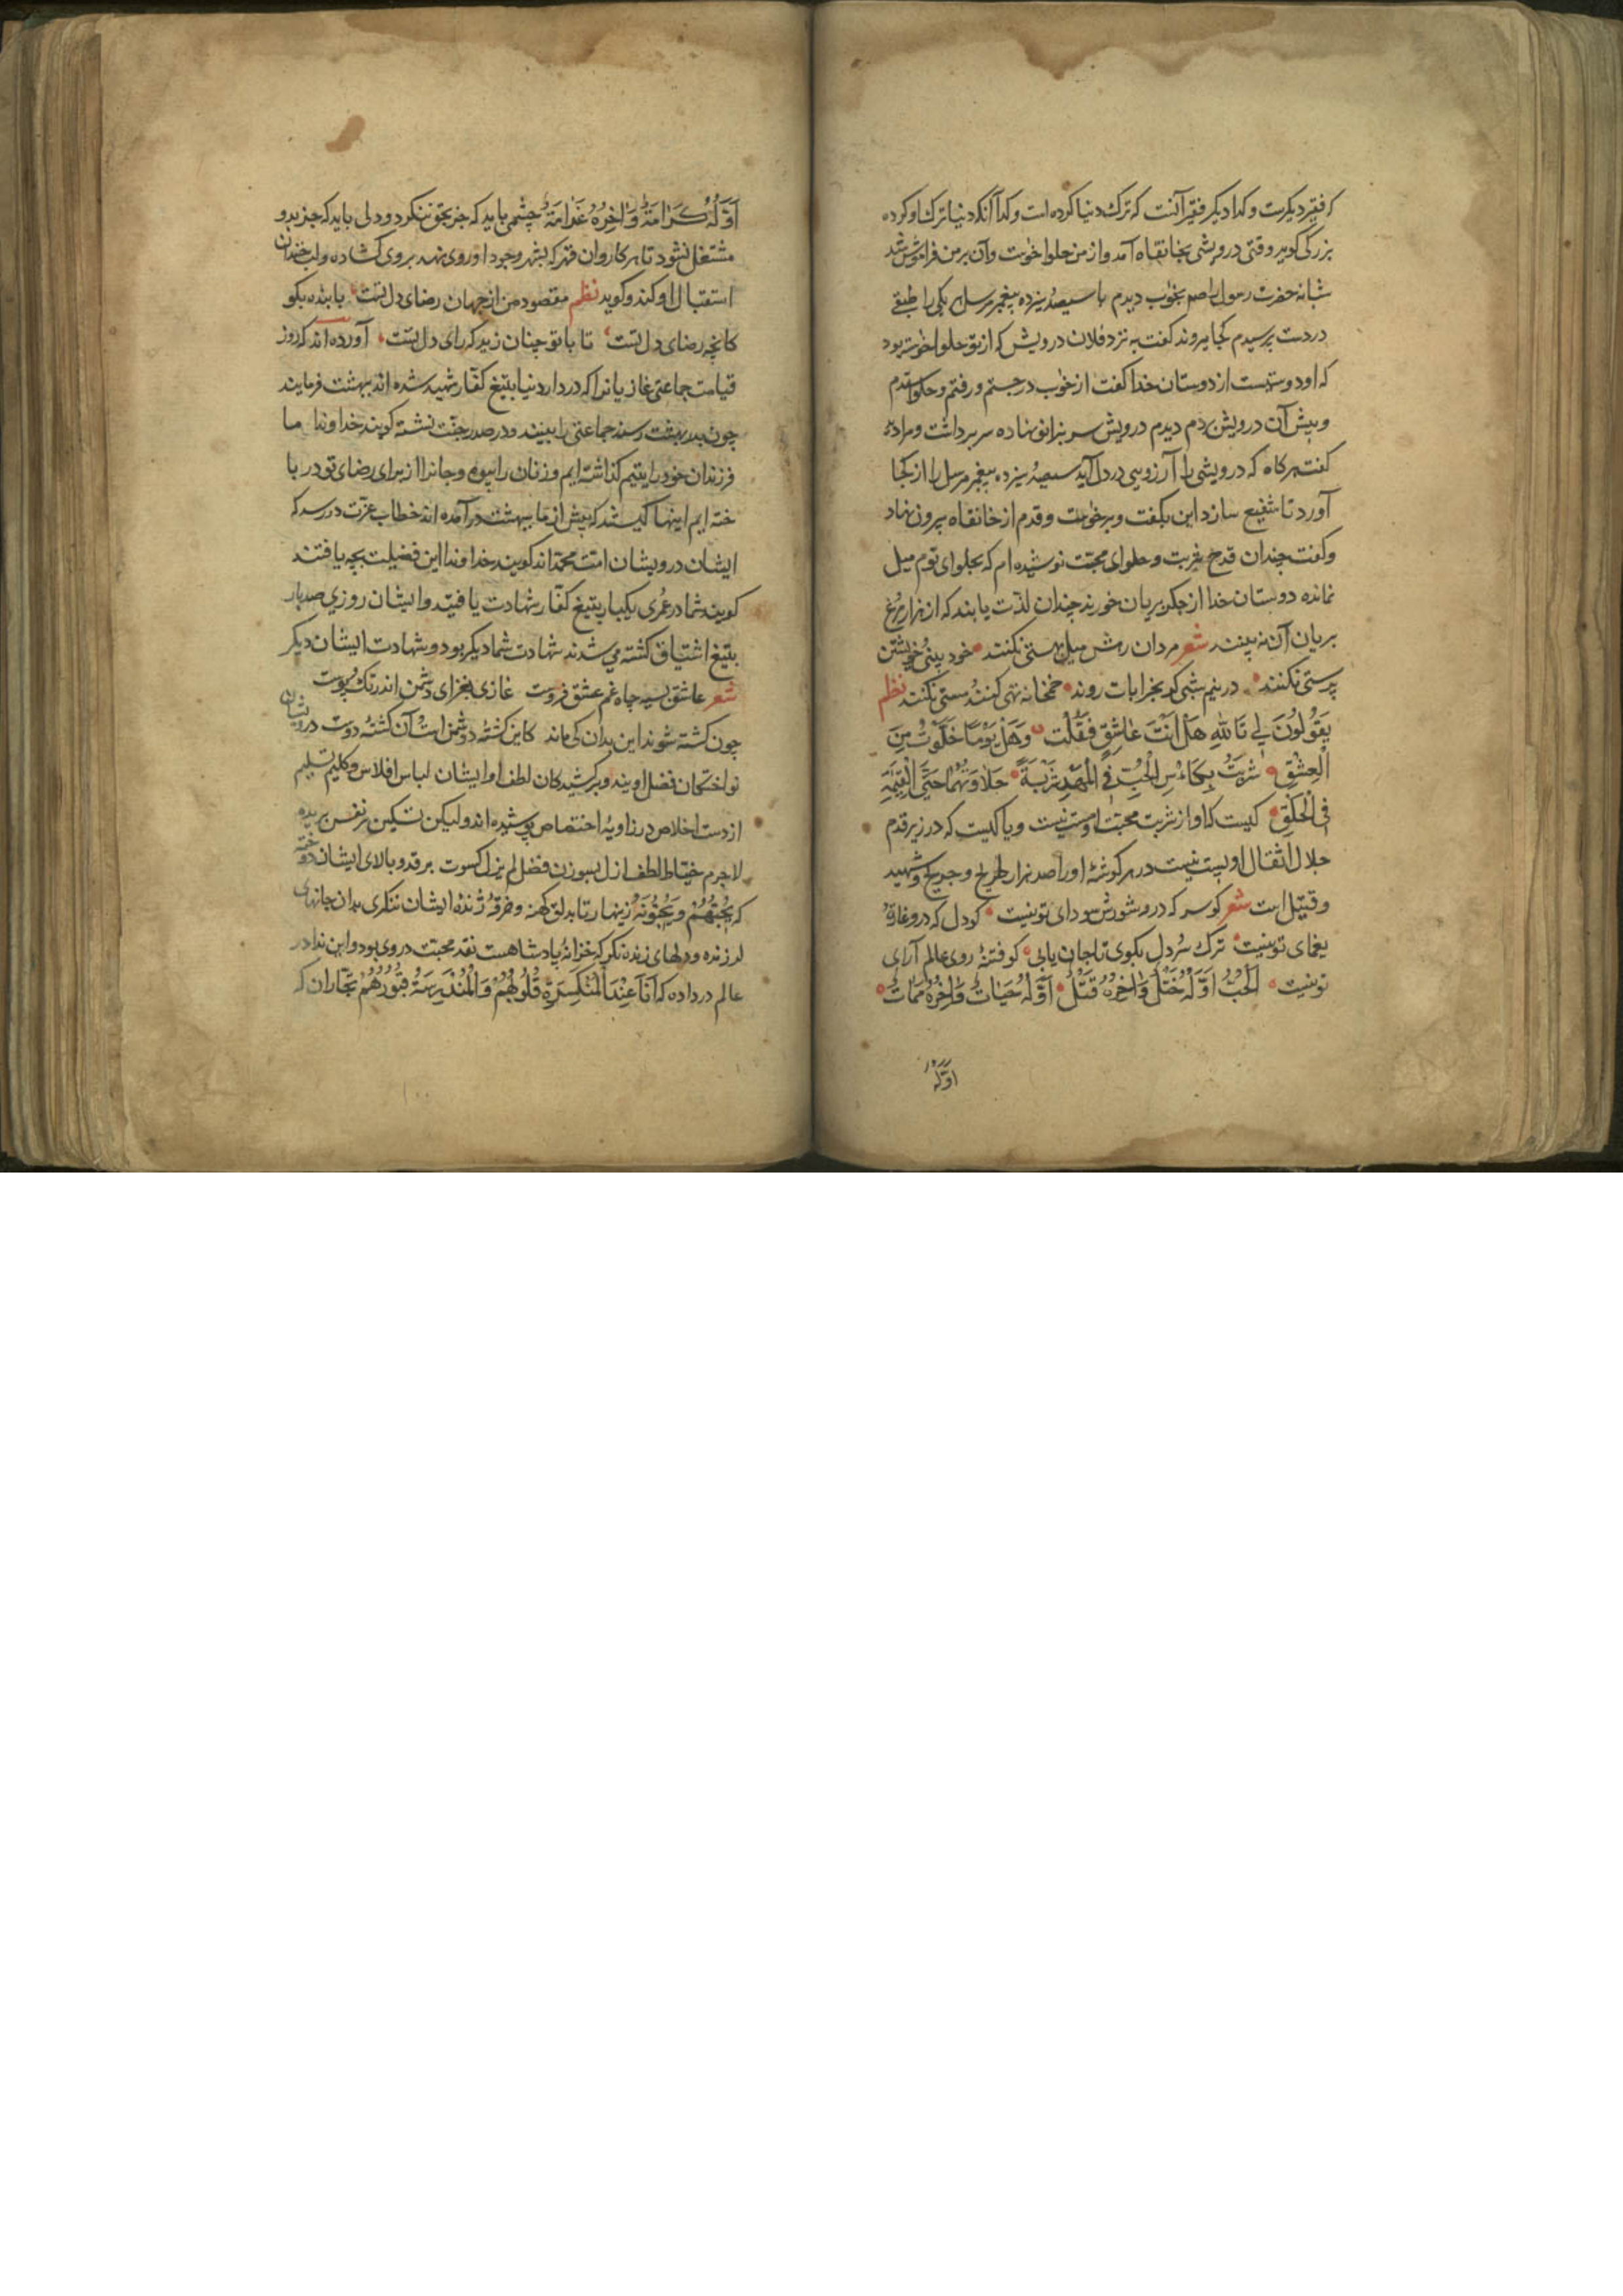 که فقیر دیکرست و کدا دیکر فقیر آنست که ترک دنیا کرده است و کدا آنکه دنیا ترک او کرده
بزرکی کوید وقتی درویشی بخانقاه آمد و از من حلوا خواست و آن بر من فراموش شد
شبانه حضرت رسول را صلعم بخواب دیدم با سیصد و سیزده پیغمبر مرسل هر یکی را طبقی
در دست پرسیدم کجا میروند کفت به نزد فلان درویش که از تو حلوا خواسته بود
که او دوستیست از دوستان خدا کفت از خواب در جستم و رفتم و حلوا ستدم
و پیش آن درویش بردم دیدم درویش سر بزانو نهاده سر برداشت و مرا دید
کفت هرکاه که درویشی را آرزویی در دل آید سیصد و سیزده پیغمبر مرسل را از کجا
آورد تا شفیع سازد این بکفت و برخواست و قدم از خانقاه بیرون نهاد
و کفت چندان قدح شربت و حلوای محبت نوشیده ام که بحلوای توم میل
نمانده دوستان خدا از جکر بریان خورند چندان لذّت یابند که از هزار مرغ
بریان آن نه بینند شعر مردان رهش میل بهستی نکنند خود بینی و خویشتن
پرستی نکنند در نیم شبی که بخرابات روند خمخانه تهی کنند و مستی نکنند نظم
یَقُولُونَ لِی تَاللهِ هَل اَنتَ عاشِقٍ فَقُلت وَهَل یَومًا خَلَوتُ مِنَ
الْعِشْقِ شَرِبتُ بِکَاسِ الحُبِّ فِی المَهدِ شَربَةً حَلاوَتُهَا حَتَّی القِیٰمَةِ
فِی الحَلقِ کیست که او از شربت محبت او مست نیست و یا کیست که در زیر قدم
جلال اثقال او پست نیست در هر کوشهٔ او را صد هزار طریح و جریح و شهید
و قتیل است شعر کو سر که درو شورش سودای تو نیست کو دل که درو غارت
یغمای تو نیست ترک سر دل بکوی تا جان یابی کو فتنهٔ روی عالم آرای
تو نیست اَلحُبُّ اَوَّلُهُ خَتلُ وَاٰخِرُهُ قَتلُ اَوَّلُهُ حَیَاتُ وَاٰخِرُهُ مَمَاتُ
اوّلهُ
اَوَّلُهُ کَرَامَةُ وَاٰخِرُهُ غَرَامَةُ چشمی باید که جز بحق ننکرد و دلی باید که جز بدو
مشتغل نشود تا هر کاروان قهر که بشهر وجود او روی نهد بروی کشاده و لب خندان
استقبال او کند و کوید نظم مقصود من از جهان رضای دل تست با بنده بکو
کانچه رضای دل تست تا با تو چنان زید که رای دل تست آورده اند که روز
قیامت جماعتی غازیانرا که در دار دنیا بتیغ کفّار شهید شده اند ببهشت فرمایند
چون بدر بهشت رسند جماعتی را بینند در صدر جنّت نشسته کویند خداوندا ما
فرزندان خود را یتیم کذاشته ایم و زنان را بیوه و جانرا از برای رضای تو در با
خته ایم اینها کیستند که پیش از ما ببهشت درآمده اند خطاب عزّت در رسد که
ایشان درویشان امت محمّد اند کویند خداوندا این فضیلت بچه یافتند
کویند شما در عُمری یکبار بتیغ کفّار شهادت یافتید و ایشان روزی صد بار
بتیغ اشتیاق کشته می شدند شهادت شما دیکر بود و شهادت ایشان دیکر
شعر عاشق بسیه چاه غم عشق فروست غازی بغزای دشمن اندر تک و پوست
چون کشته شوند این بدان کی ماند کاین کشتهٔ دشمن است و آن کشتهٔ دوست درویشان
نواختکان فضل اویند و برکشیدکان لطف او ایشان لباس افلاس و کلیم تسلیم
از دست اخلاص در زاویهٔ اختصاص پوشیده اند ولیکن تسکین نفس بریده
لاجرم خیّاط لطف ازل بسوزن فضل لم یزل کسوت بر قد و بالای ایشان دوخته
که یُحِبُّهُم وَیُحِبُّونَهُ زینهار تا بدلق کهنه و خرقه ژندهٔ ایشان ننکری بدان جانهای
ارزنده و دلهای زنده نکر که خزانهٔ پادشاهست نقد محبت در وی بود و این ندا در
عالم در داده که اَنَا عِندَ المُنکَسِرَةِ قُلُوبُهُم وَالمُندَرِسَةُ قُبُورُهُم تجّاران که